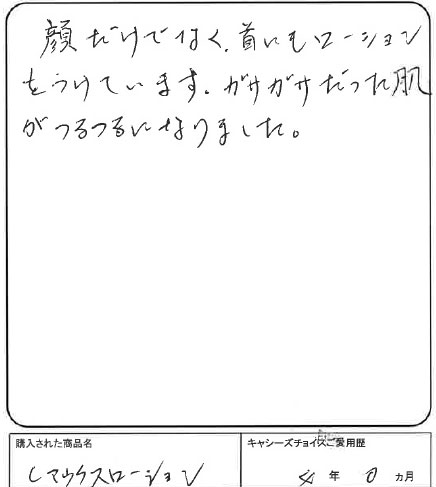 顔だけでなく、首にもローション
をうけています。ガサガサだった肌
がつるつるになりました。
購入された商品名
キャシーズチョイスご愛用歴
Cマックスローション
年 0 ヵ月